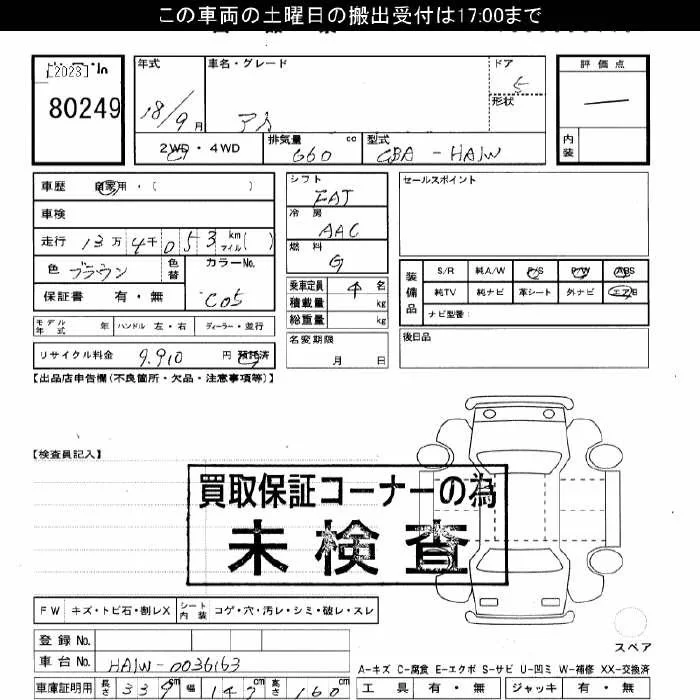 この車両の土曜日の搬出受付は17:00まで
[2023]
80249
年式
18/9月
車名・グレード
アイ
ドア
5
形状
評価点
—
内装
2WD・4WD
排気量 660 cc
型式 CBA - HA1W
車歴 自家用・( )
車検
走行 13万 4千 053 km マイル( )
色 ブラウン 色替
カラーNo. C05
保証書 有・無
モデル年式 年 ハンドル 左・右 ディーラー・並行
リサイクル料金 9,910 円 預託済
シフト
FAT
冷房
AAC
燃料
G
乗車定員 4 名
積載量 kg
総重量 kg
名変期限
月 日
セールスポイント
装備品
S/R 純A/W P/S P/W ABS
純TV 純ナビ 革シート 外ナビ エアB
ナビ型番:
後日品
【出品店申告欄(不良箇所・欠品・注意事項等)】
【検査員記入】
買取保証コーナーの為
未検査
FW キズ・トビ石・割レX シート内装 コゲ・穴・汚レ・シミ・破レ・スレ
登録No.
車台No. HA1W-0036163
車庫証明用 長さ 339cm 幅 147cm 高さ 160cm
スペア
A-キズ C-腐食 E-エクボ S-サビ U-凹ミ W-補修 XX-交換済
工具 有・無 ジャッキ 有・無